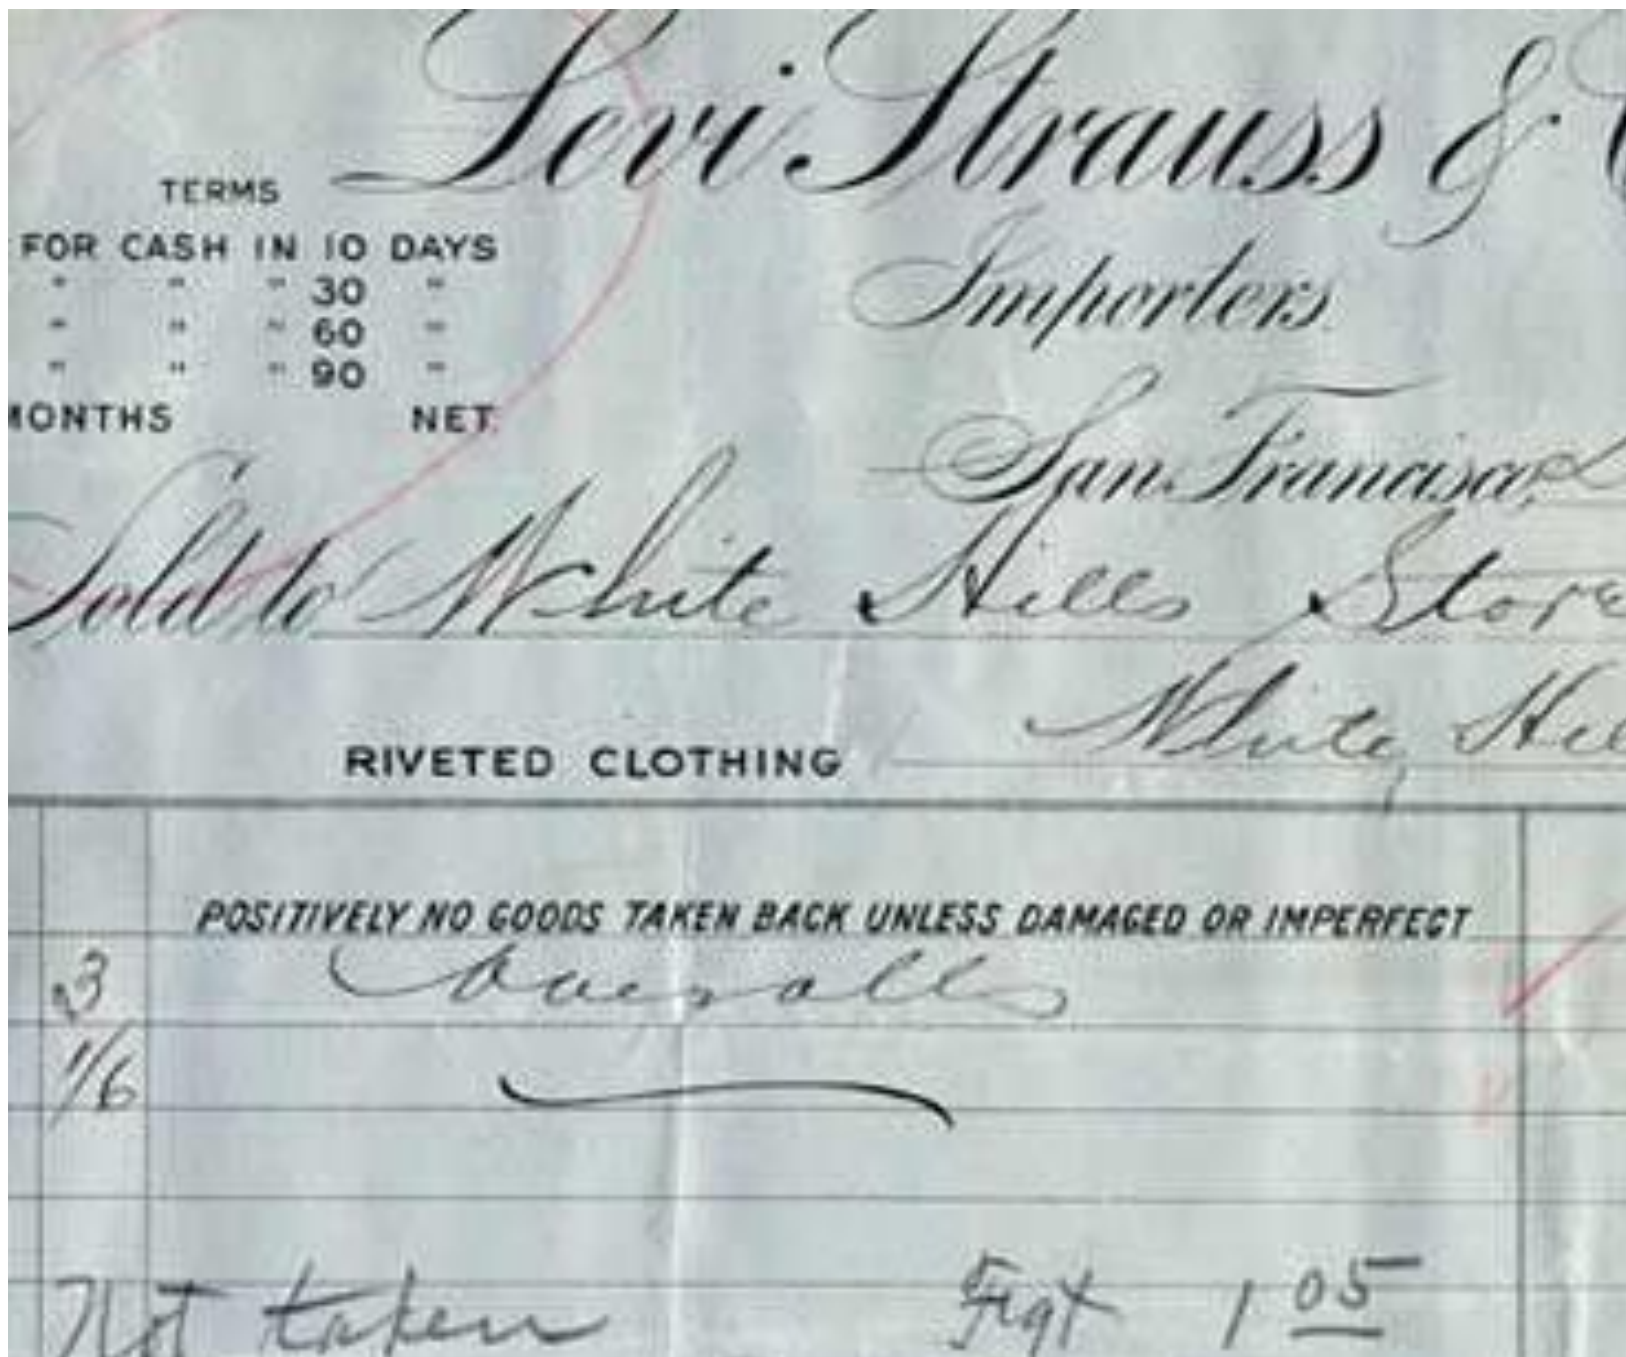 Levi Strauss & C
TERMS
FOR CASH IN 10 DAYS
" " " 30 "
" " " 60 "
" " " 90 "
MONTHS NET
Importers
San Francisco,
Sold to White Hills Store
White Hil
RIVETED CLOTHING
POSITIVELY NO GOODS TAKEN BACK UNLESS DAMAGED OR IMPERFECT
3 Overalls
1/6
Not taken Frgt 1 05